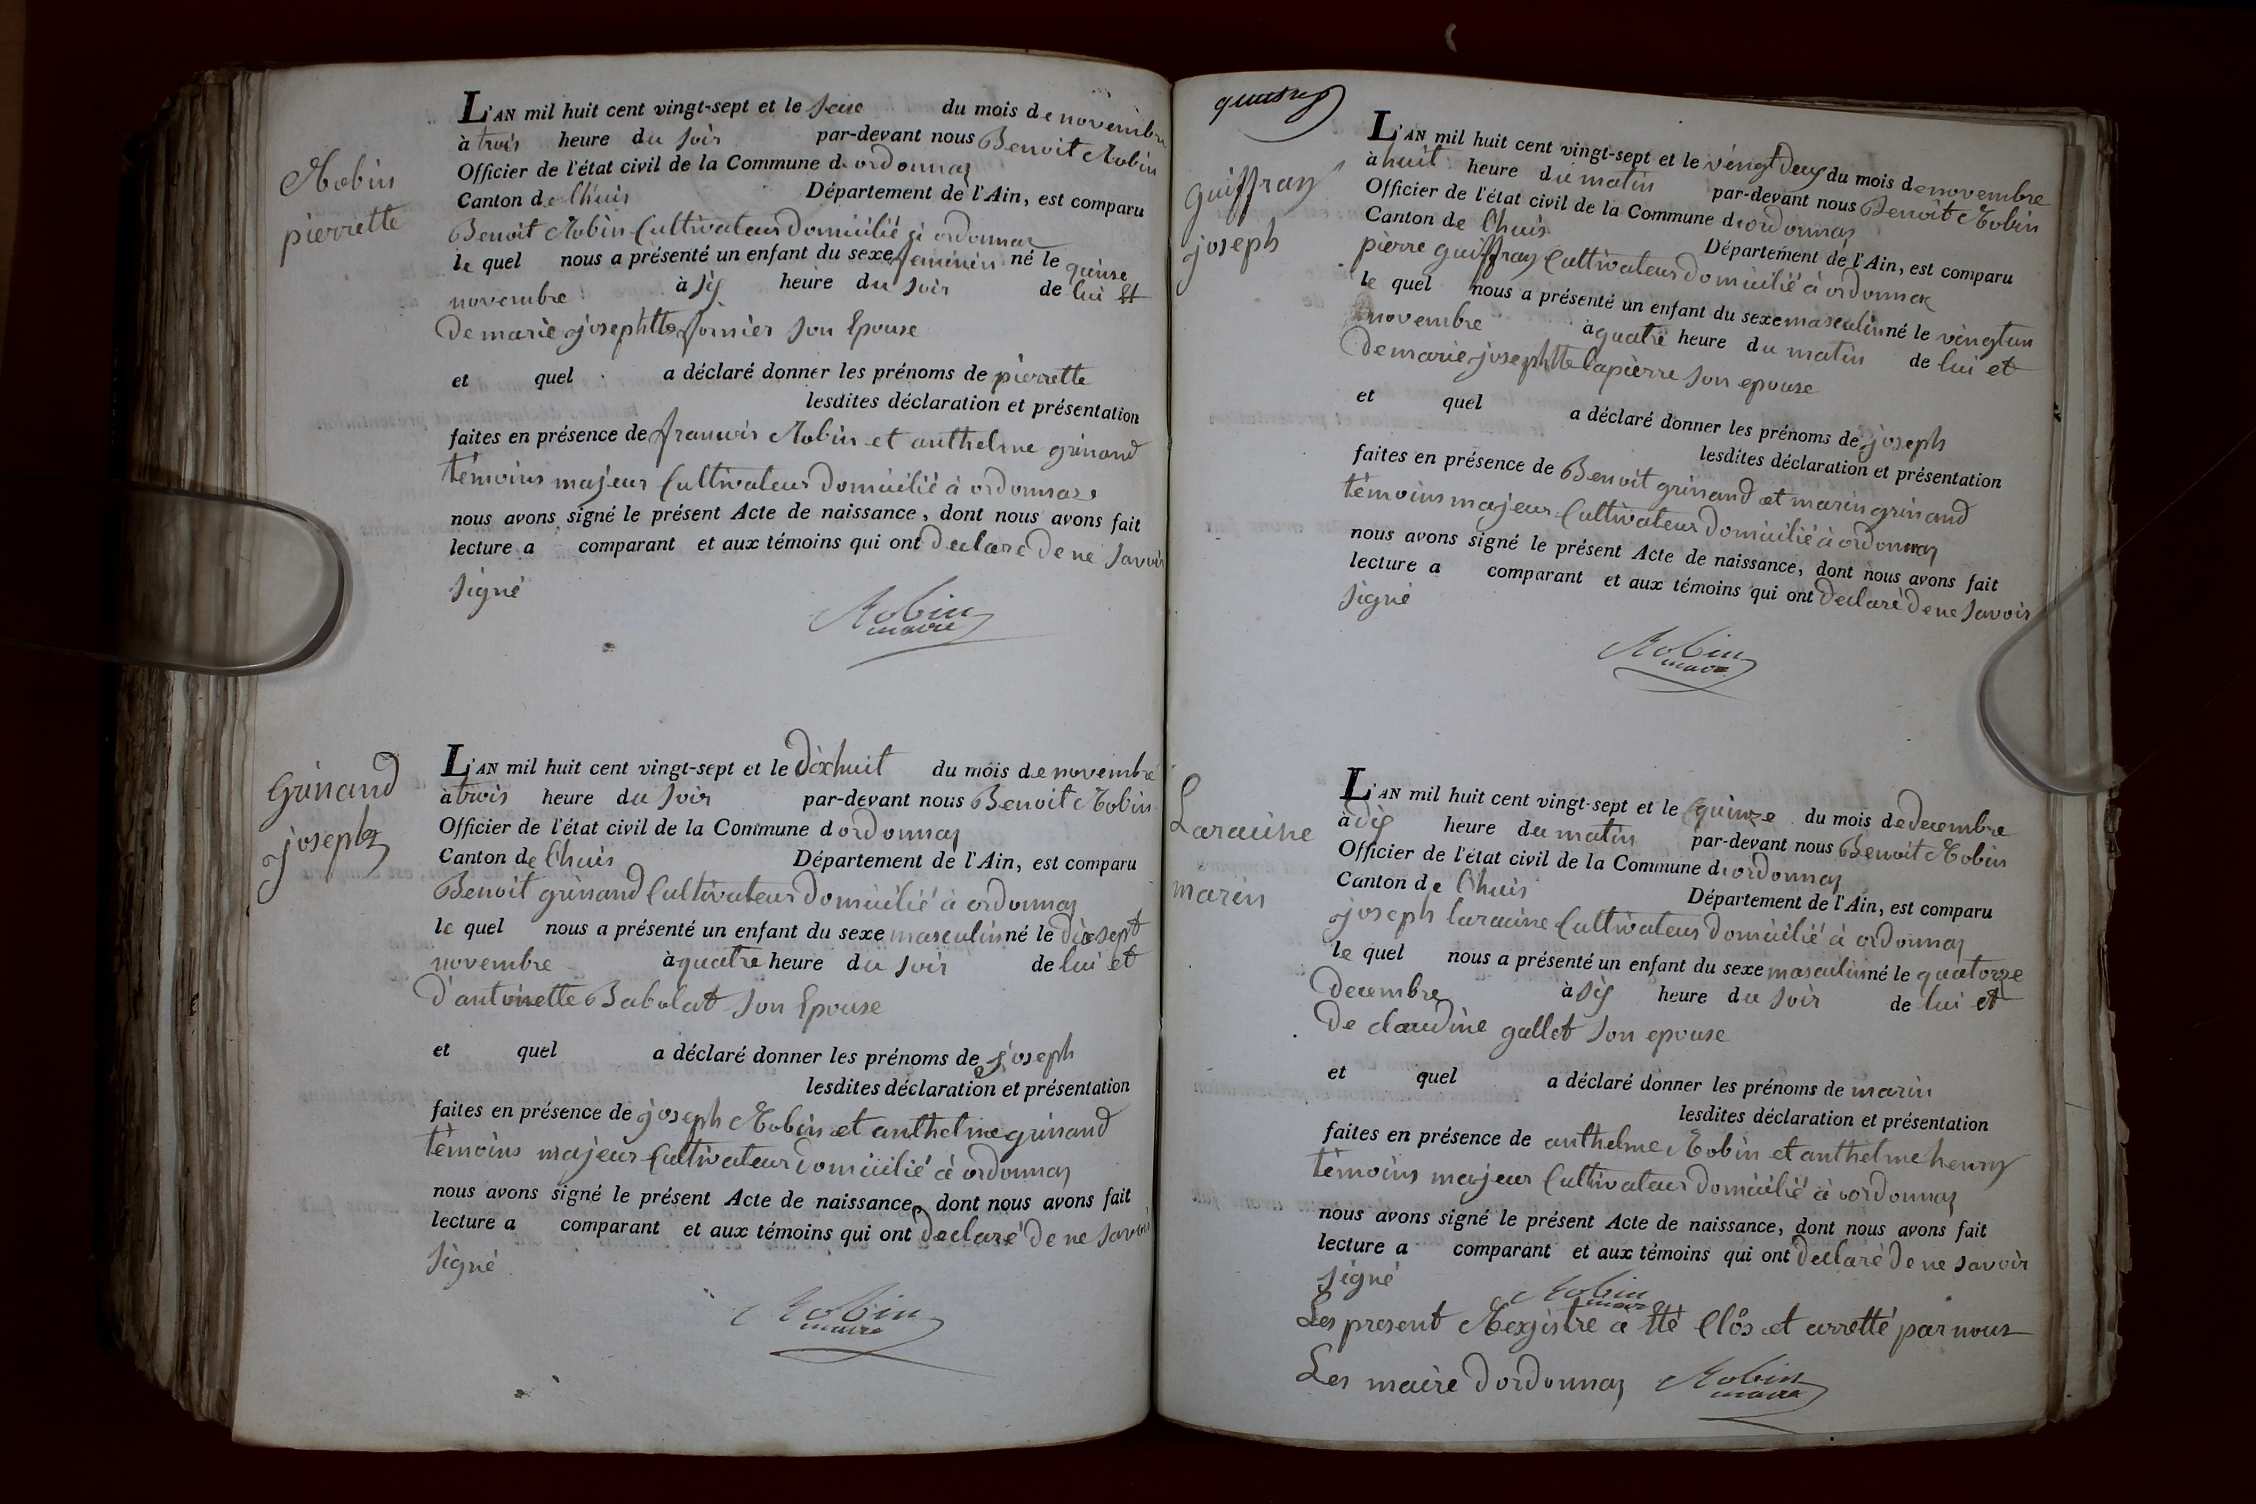 Robin
pierrette
L'AN mil huit cent vingt-sept et le seize du mois de novembre
à trois heure du soir par-devant nous Benoit Robin
Officier de l'état civil de la Commune d ordonnaz
Canton de lhuis Département de l'Ain, est comparu
Benoit Robin Cultivateur domicilié à ordonnaz
le quel nous a présenté un enfant du sexe feminin né le quinse
novembre à six heure du soir de lui et
de marie josephtte fornier son Epouse
et quel a déclaré donner les prénoms de pierrette
lesdites déclaration et présentation
faites en présence de francois Robin et anthelme grinand
témoins majeur Cultivateur domicilié à ordonnaz
nous avons signé le présent Acte de naissance, dont nous avons fait
lecture a comparant et aux témoins qui ont declaré de ne savoir
signé
Robin
maire
Grinand
joseph
L'AN mil huit cent vingt-sept et le dixhuit du mois de novembre
à trois heure du soir par-devant nous Benoit Robin
Officier de l'état civil de la Commune d ordonnaz
Canton de lhuis Département de l'Ain, est comparu
Benoit grinand Cultivateur domicilié à ordonnaz
le quel nous a présenté un enfant du sexe masculin né le dixsept
novembre à quatre heure du soir de lui et
d'antoinette Babolat son Epouse
et quel a déclaré donner les prénoms de joseph
lesdites déclaration et présentation
faites en présence de joseph Robin et anthelme grinand
témoins majeur Cultivateur domicilié à ordonnaz
nous avons signé le présent Acte de naissance, dont nous avons fait
lecture a comparant et aux témoins qui ont declaré de ne savoir
signé
Robin
maire
guiffray
joseph
L'AN mil huit cent vingt-sept et le vingt deux du mois de novembre
à huit heure du matin par-devant nous Benoit Robin
Officier de l'état civil de la Commune d ordonnaz
Canton de lhuis Département de l'Ain, est comparu
pierre guiffray Cultivateur domicilié à ordonnaz
le quel nous a présenté un enfant du sexe masculin né le vingt un
novembre à quatre heure du matin de lui et
de marie josephtte lapierre son epouse
et quel a déclaré donner les prénoms de joseph
lesdites déclaration et présentation
faites en présence de Benoit grinand et marin grinand
témoins majeur Cultivateur domicilié à ordonnaz
nous avons signé le présent Acte de naissance, dont nous avons fait
lecture a comparant et aux témoins qui ont declaré de ne savoir
signé
Robin
maire
Laraine
marin
L'AN mil huit cent vingt-sept et le quinze du mois de decembre
à dix heure du matin par-devant nous Benoit Robin
Officier de l'état civil de la Commune d ordonnaz
Canton de lhuis Département de l'Ain, est comparu
joseph laraine Cultivateur domicilié à ordonnaz
le quel nous a présenté un enfant du sexe masculin né le quatorze
decembre à six heure du soir de lui et
de claudine gallet son epouse
et quel a déclaré donner les prénoms de marin
lesdites déclaration et présentation
faites en présence de anthelme Robin et anthelme henry
témoins majeur Cultivateur domicilié à ordonnaz
nous avons signé le présent Acte de naissance, dont nous avons fait
lecture a comparant et aux témoins qui ont declaré de ne savoir
signé
Robin
maire
Les present Regjstre a été Clôs et arretté par nous
Les maire dordonnaz Robin
maire